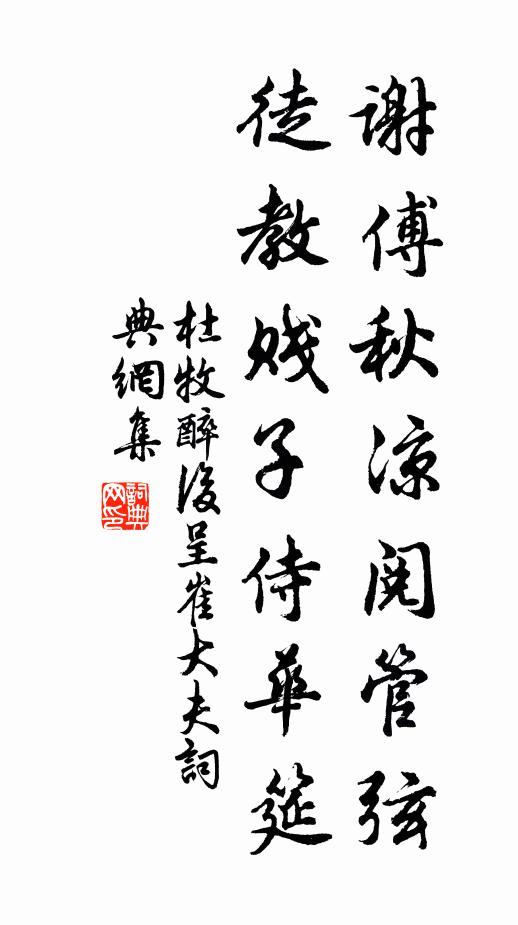 谢傅秋凉阅管弦
徒教贱子侍華筵
杜牧醉後呈崔大夫詞
典網集
詞典
网印